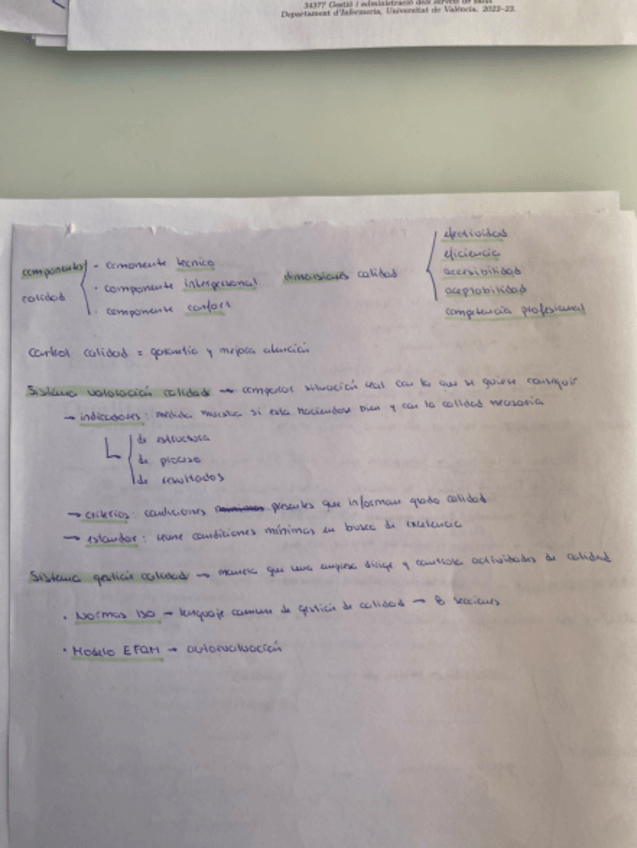 34377 Gestió i administració dels serveis de salut
Departament d'Infermeria, Universitat de València. 2022-23.
componentes calidad
- componente tecnico
· componente interpersonal
· componente confort
dimensiones calidad
efectividad
eficiencia
accesibilidad
aceptabilidad
competencia profesional
control calidad = garantia y mejora atención
Sistema valoración calidad → comparar situación real con lo que se quiere conseguir
→ indicadores: medida muestra si esta haciendose bien y con la calidad necesaria
de estructura
de proceso
de resultados
→ criterios: condiciones presentes que informan grado calidad
→ estandar: reune condiciones mínimas en busca de excelencia
Sistema gestión calidad → manera que una empresa dirige y controla actividades de calidad
· Normas ISO → lenguaje comun de gestión de calidad → 8 secciones
· Modelo EFQM → autoevaluación